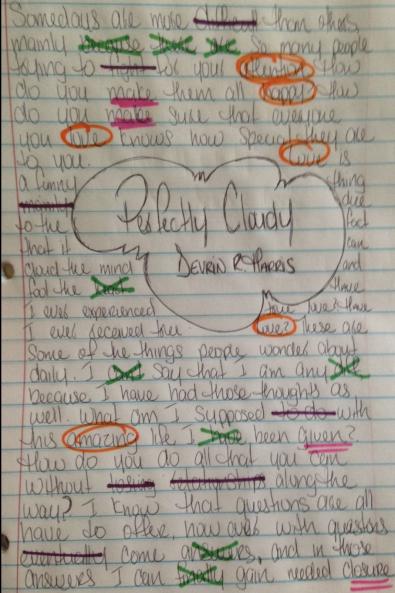 Somedays are more difficult than others,
mainly because there are so many people
trying to fight for your attention. How
do you make them all happy? How
do you make sure that everyone
you love knows how special they are
to you. Love is
a funny thing
mainly due
to the fact
that it can
cloud the mind and
fool the Have
Perfectly Cloudy
DEVRIN R. HARRIS
I ever experienced true love? Have
I ever received true love? These are
Some of the things people wonder about
daily. I can't say that I am any
because I have had those thoughts as
well. What am I supposed to do with
this amazing life I have been given?
How do you do all that you can
without losing relationships along the
way? I know that questions are all
I have to offer, however with questions
eventually come answers, and in those
answers I can finally gain needed closure